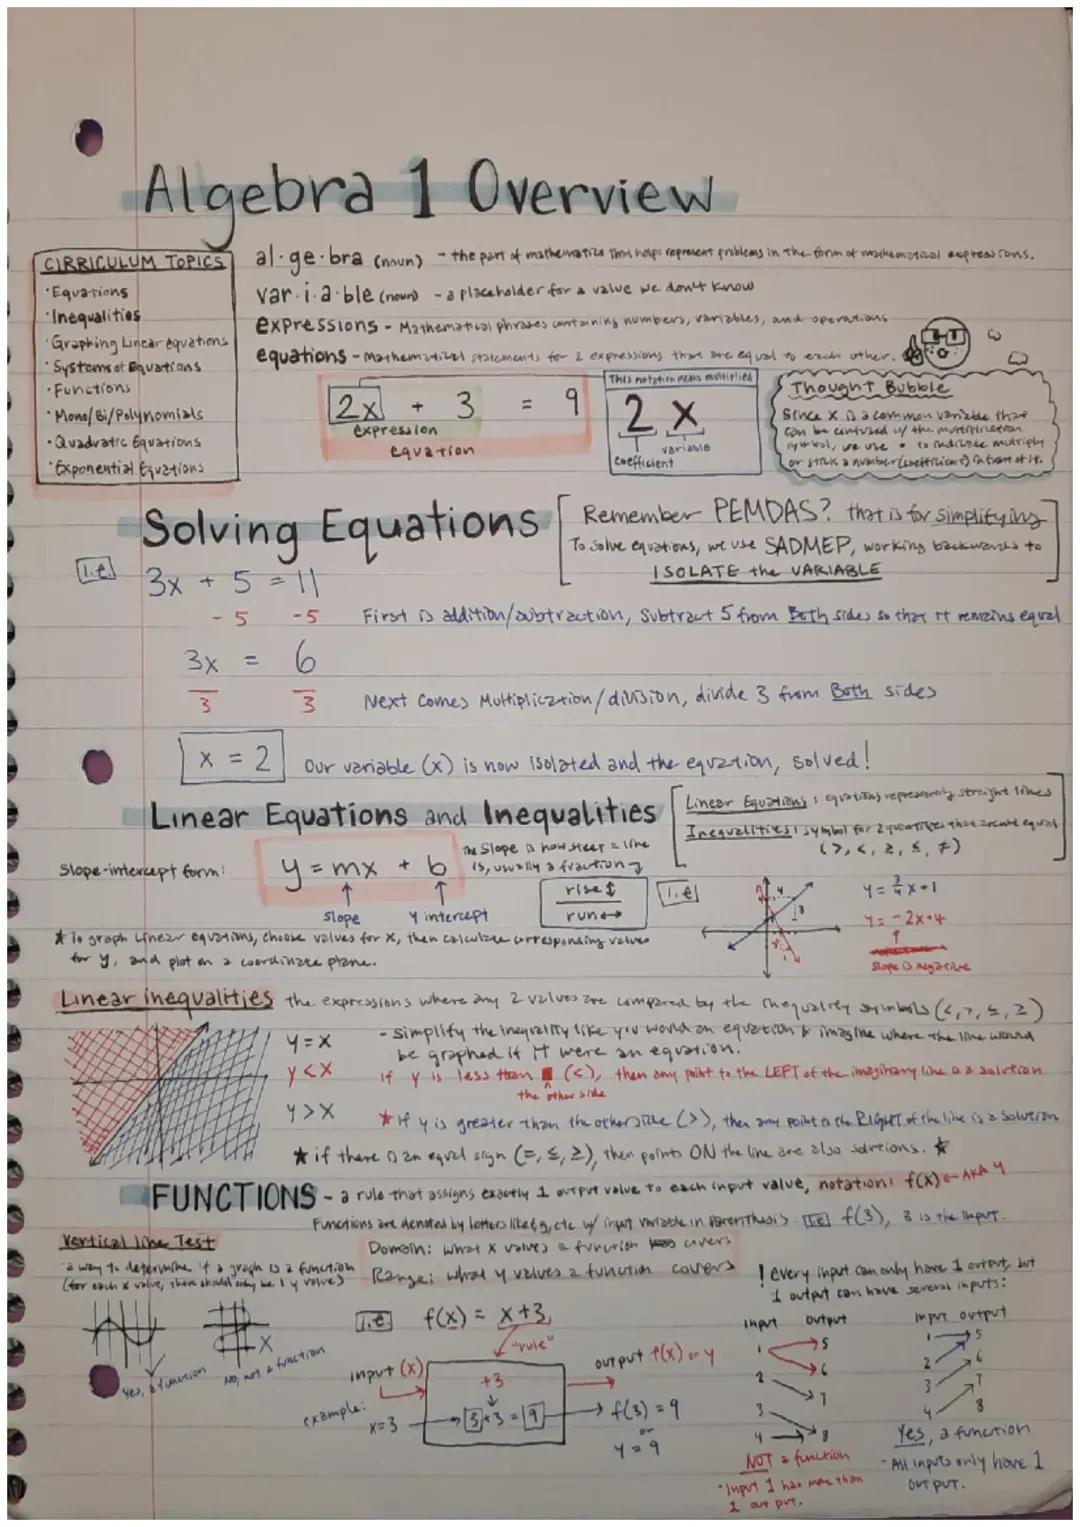 Algebra 1 Overview
CIRRICULUM TOPICS
·Equations
·Inequalities
·Graphing Linear equations
·Systems of Equations
·Functions
·Mono/Bi/Polynomials
·Quadratic Equations
·Exponential Equations
al·ge·bra (noun) - the part of mathematics that helps represent problems in the form of mathematical expressions.
var·i·a·ble (noun) - a placeholder for a value we don't know
expressions - Mathematical phrases containing numbers, variables, and operations
equations - Mathematical statements for 2 expressions that are equal to each other.
2x + 3 = 9
expression
equation
This notation means multiplied
2 x
coefficient
variable
Thought Bubble
Since X is a common variable that
can be confused w/ the multiplication
symbol, we use • to indicate multiply
or stick a number (coefficient) in front of it.
Solving Equations
Remember PEMDAS? that is for simplifying
To solve equations, we use SADMEP, working backwards to
ISOLATE the VARIABLE
I.e.
3x + 5 = 11
- 5 -5
First is addition/subtraction, Subtract 5 from Both sides so that it remains equal
3x = 6
3 3
Next comes Multiplication/division, divide 3 from Both sides
x = 2
Our variable (x) is now isolated and the equation, solved!
Linear Equations and Inequalities
Linear Equations: equations representing straight lines
Inequalities: symbol for 2 quantities that are not equal
(>, <, ≥, ≤, ≠)
Slope-intercept form:
y = mx + b
slope
Y intercept
The Slope is how steep a line
is, usually a fraction
rise ↕
run ↔
I.e
4
3
y = 3/4 x+1
y = -2x+4
slope is negative
* To graph linear equations, choose values for X, then calculate corresponding values
for y, and plot on a coordinate plane.
Linear inequalities the expressions where any 2 values are compared by the inequality symbols (<,>,≤,≥)
y = x
y < x
y > x
- simplify the inequality like you would an equation & imagine where the line would
be graphed if it were an equation.
if y is less than (<), then any point to the LEFT of the imaginary line is a solution
the other side
* if y is greater than the other side (>), then any point to the RIGHT of the line is a solution
* if there is an equal sign (=, ≤, ≥), then points ON the line are also solutions. *
FUNCTIONS - a rule that assigns exactly 1 output value to each input value, notation: f(x) ← AKA y
Functions are denoted by letters like f, g, etc w/ input variable in parenthesis. I.e f(3), 3 is the input.
Vertical line Test
-a way to determine if a graph is a function
(for each x value, there should only be 1 y value)
Yes, a function
X
No, not a function
Domain: what x values a function covers
Range: what y values a function covers
I.e
f(x) = x+3
"rule"
input (x)
+3
output f(x) or y
example:
x=3
3+3=9
f(3) = 9
or
y = 9
! every input can only have 1 output, but
1 output can have several inputs:
input output
1 5
2 6
3 7
4 8
NOT a function
-Input 1 has more than
1 output.
input output
1 5
2 6
3 7
4 8
Yes, a function
- All inputs only have 1
output.